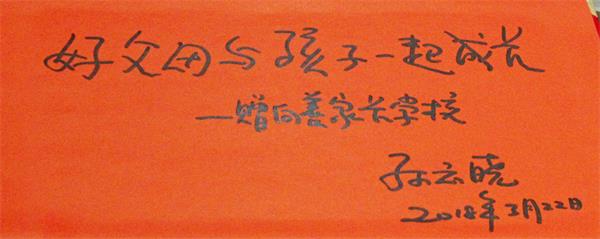 好父母与孩子一起成长
—赠向善家长学校
孙云晓
2018年3月22日